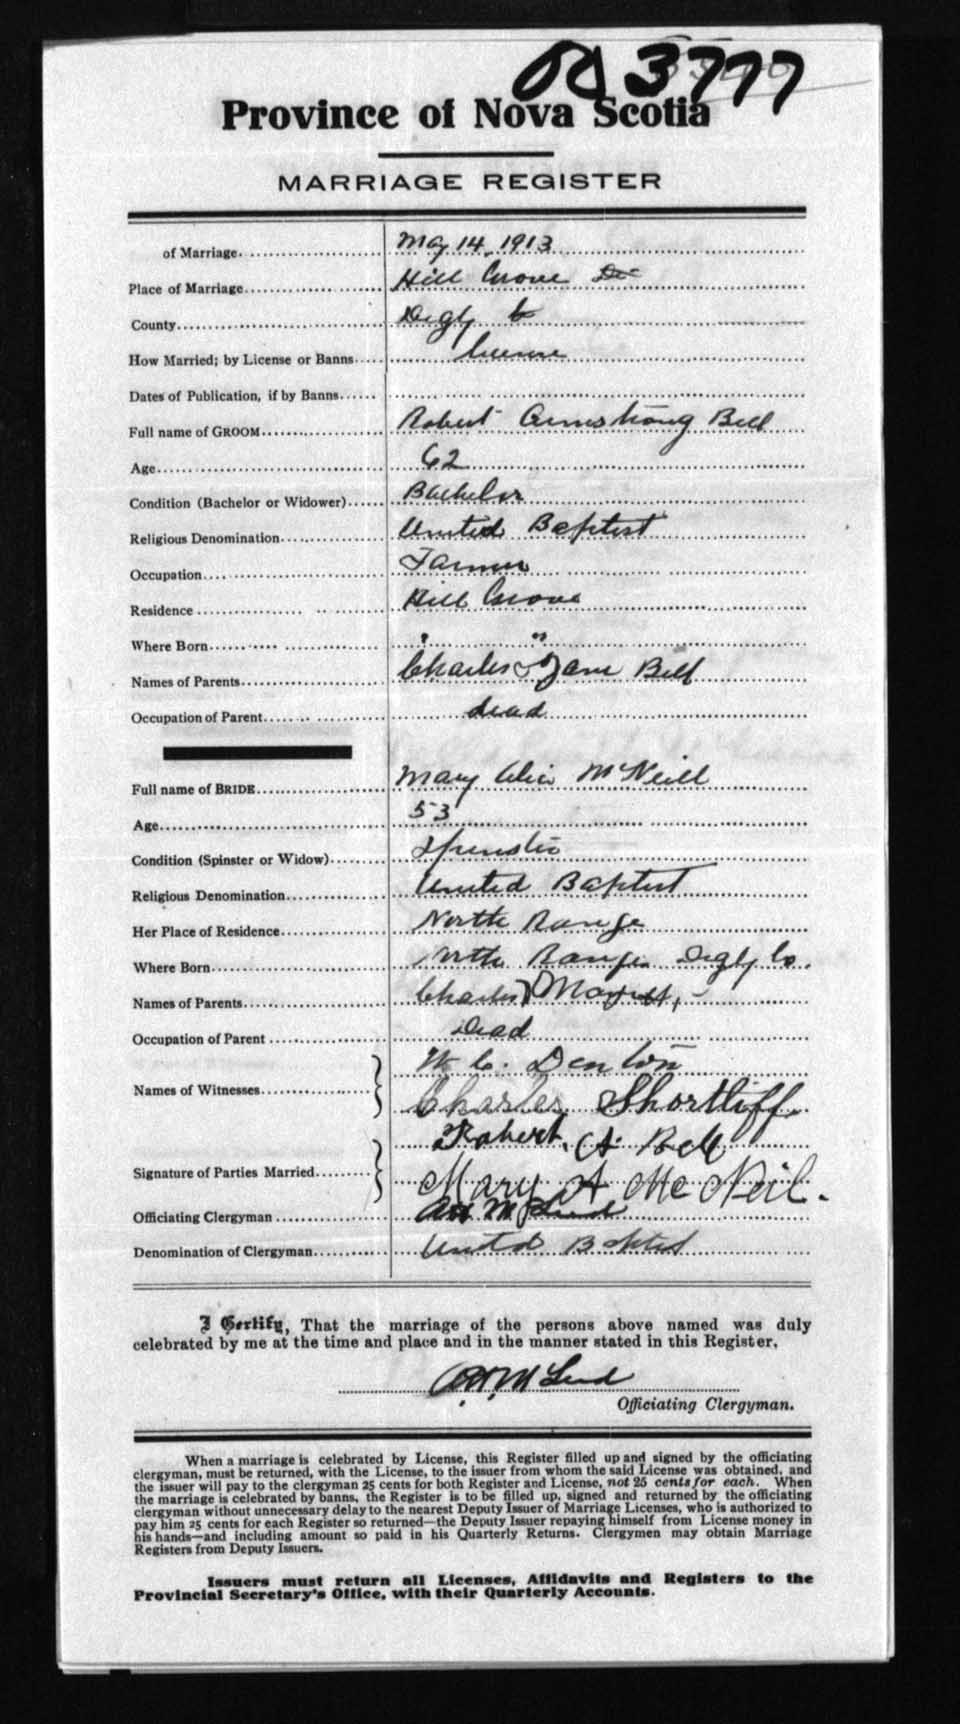 3777
Province of Nova Scotia
MARRIAGE REGISTER
of Marriage. May 14, 1913
Place of Marriage Hill Grove
County Digby Co
How Married; by License or Banns license
Dates of Publication, if by Banns
Full name of GROOM Robert Armstrong Bell
Age 62
Condition (Bachelor or Widower) Bachelor
Religious Denomination United Baptist
Occupation Farmer
Residence Hill Grove
Where Born " "
Names of Parents Charles & Jane Bell
Occupation of Parent dead
Full name of BRIDE Mary Alice McNeill
Age 53
Condition (Spinster or Widow) Spinster
Religious Denomination United Baptist
Her Place of Residence North Range
Where Born North Range Digby Co.
Names of Parents Charles
Occupation of Parent Dead
Names of Witnesses W. C. Denton
Charles Shortliff
Robert. A. Bell
Signature of Parties Married Mary A McNeil.
Officiating Clergyman
Denomination of Clergyman United Baptist
I Certify, That the marriage of the persons above named was duly
celebrated by me at the time and place and in the manner stated in this Register,
Officiating Clergyman.
When a marriage is celebrated by License, this Register filled up and signed by the officiating
clergyman, must be returned, with the License, to the issuer from whom the said License was obtained, and
the issuer will pay to the clergyman 25 cents for both Register and License, not 25 cents for each. When
the marriage is celebrated by banns, the Register is to be filled up, signed and returned by the officiating
clergyman without unnecessary delay to the nearest Deputy Issuer of Marriage Licenses, who is authorized to
pay him 25 cents for each Register so returned—the Deputy Issuer repaying himself from License money in
his hands—and including amount so paid in his Quarterly Returns. Clergymen may obtain Marriage
Registers from Deputy Issuers.
Issuers must return all Licenses, Affidavits and Registers to the
Provincial Secretary's Office, with their Quarterly Accounts.